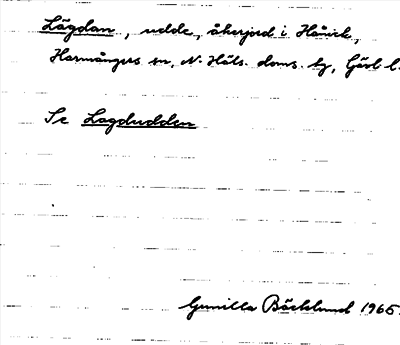 Lägdan, udde, åkerjord i Hårick,
Harmångers sn, N. Häls. doms. bg, Gävl l.
Se Lagdudden
Gunilla Bäcklund 1965.